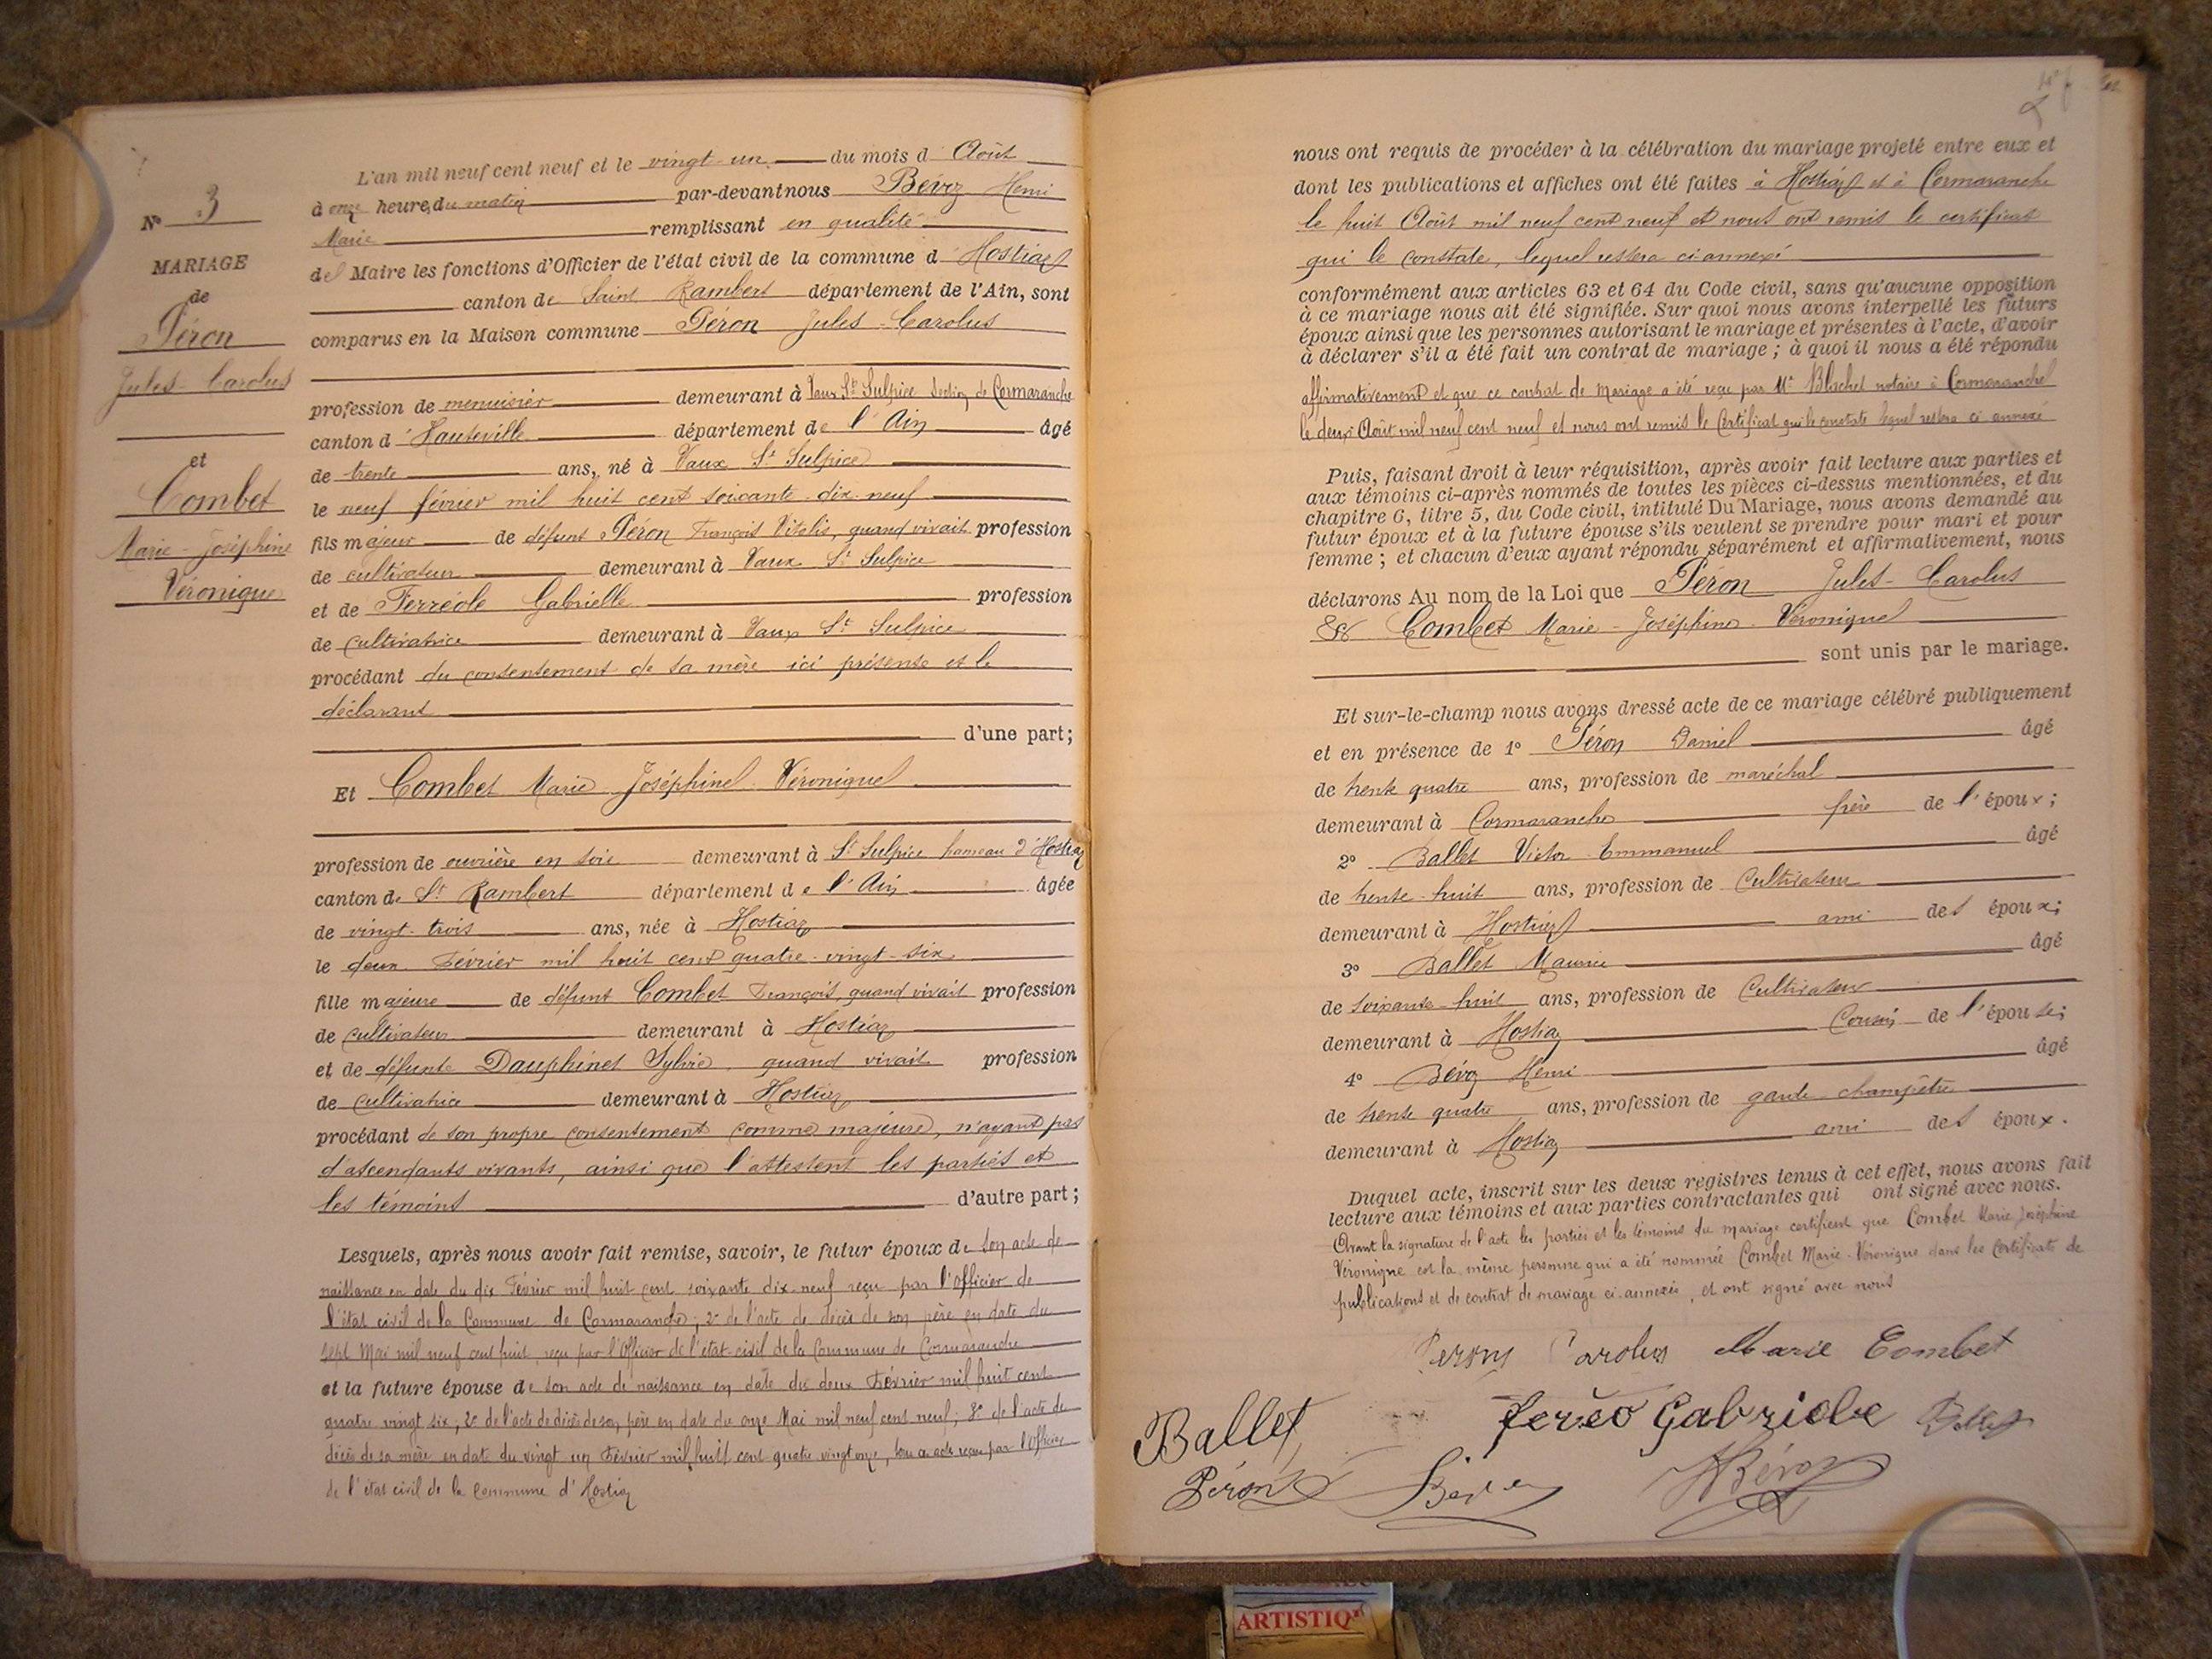 N° 3
MARIAGE
de
Péron
Jules-Carolus
et
Combet
Marie-Joséphine
Véronique
L'an mil neuf cent neuf et le vingt-un du mois d' Août
à onze heures du matin par-devant nous Bévoz Henri
Marie remplissant en qualité
de Maire les fonctions d'Officier de l'état civil de la commune d' Hostiaz
canton de Saint Rambert département de l'Ain, sont
comparus en la Maison commune Péron Jules-Carolus
profession de menuisier demeurant à Vaux St Sulpice section de Cormaranche
canton d'Hauteville département de l'Ain âgé
de trente ans, né à Vaux St Sulpice
le neuf février mil huit cent soixante-dix-neuf
fils majeur de défunt Péron François Vitalis, quand vivait profession
de cultivateur demeurant à Vaux St Sulpice
et de Ferréole Gabrielle profession
de cultivatrice demeurant à Vaux St Sulpice
procédant du consentement de sa mère ici présente et le
déclarant
d'une part;
Et Combet Marie Joséphine Véronique
profession de ouvrière en soie demeurant à St Sulpice hameau d'Hostiaz
canton de St Rambert département de l'Ain âgée
de vingt-trois ans, née à Hostiaz
le deux Février mil huit cent quatre-vingt-six
fille majeure de défunt Combet François, quand vivait profession
de cultivateur demeurant à Hostiaz
et de défunte Dauphinet Sylvie, quand vivait profession
de cultivatrice demeurant à Hostiaz
procédant de son propre consentement comme majeure, n'ayant pas
d'ascendants vivants, ainsi que l'attestent les parties et
les témoins d'autre part;
Lesquels, après nous avoir fait remise, savoir, le futur époux de son acte de
naissance en date du dix Février mil huit cent soixante dix-neuf reçu par l'Officier de
l'état civil de la Commune de Cormaranche; 2° de l'acte de décès de son père en date du
sept Mai mil neuf cent huit, reçu par l'Officier de l'état-civil de la Commune de Cormaranche
et la future épouse de son acte de naissance en date du deux Février mil huit cent
quatre vingt six; 2° de l'acte de décès de son père en date du onze Mai mil neuf cent neuf; 3° de l'acte de
décès de sa mère en date du vingt un Février mil huit cent quatre vingt onze, tous ces actes reçus par l'Officier
de l'état civil de la commune d'Hostiaz
nous ont requis de procéder à la célébration du mariage projeté entre eux et
dont les publications et affiches ont été faites à Hostiaz et à Cormaranche
le huit Août mil neuf cent neuf et nous ont remis le certificat
qui le constate, lequel restera ci-annexé
conformément aux articles 63 et 64 du Code civil, sans qu'aucune opposition
à ce mariage nous ait été signifiée. Sur quoi nous avons interpellé les futurs
époux ainsi que les personnes autorisant le mariage et présentes à l'acte, d'avoir
à déclarer s'il a été fait un contrat de mariage; à quoi il nous a été répondu
affirmativement et que ce contrat de mariage a été reçu par Me Blachet notaire à Cormaranche
le deux Août mil neuf cent neuf et nous ont remis le Certificat qui le constate lequel restera ci annexé
Puis, faisant droit à leur réquisition, après avoir fait lecture aux parties et
aux témoins ci-après nommés de toutes les pièces ci-dessus mentionnées, et du
chapitre 6, titre 5, du Code civil, intitulé Du Mariage, nous avons demandé au
futur époux et à la future épouse s'ils veulent se prendre pour mari et pour
femme; et chacun d'eux ayant répondu séparément et affirmativement, nous
déclarons Au nom de la Loi que Péron Jules-Carolus
Et Combet Marie-Joséphine-Véronique
sont unis par le mariage.
Et sur-le-champ nous avons dressé acte de ce mariage célébré publiquement
et en présence de 1° Péron Daniel âgé
de trente quatre ans, profession de maréchal
demeurant à Cormaranche frère de l'époux;
2° Ballet Victor Emmanuel âgé
de trente-huit ans, profession de Cultivateur
demeurant à Hostiaz ami des époux;
3° Ballet Maurice âgé
de soixante-huit ans, profession de Cultivateur
demeurant à Hostiaz Cousin de l'épouse;
4° Bévoz Henri âgé
de trente quatre ans, profession de garde-champêtre
demeurant à Hostiaz ami des époux.
Duquel acte, inscrit sur les deux registres tenus à cet effet, nous avons fait
lecture aux témoins et aux parties contractantes qui ont signé avec nous.
Avant la signature de l'acte les parties et les témoins du mariage certifient que Combet Marie Joséphine
Véronique est la même personne qui a été nommée Combet Marie-Véronique dans les Certificats de
publications et de contrat de mariage ci-annexés, et ont signé avec nous
Peron Carolus Marie Combet
Ballet Feréo Gabriele Ballet
Péron Bévoz HBévoz
ARTISTIQ